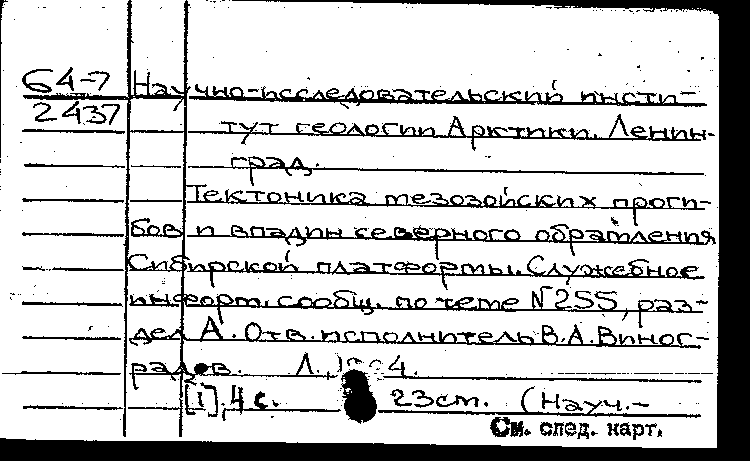 64-7 Научно-исследовательский инсти-
2437 тут геологии Арктики. Ленин-
град.
Тектоника мезозойских проги-
бов и впадин северного обрамления
Сибирской платформы. Служебное
информ. сообщ. по теме N255, раз-
дел А. Отв. исполнитель В.А. Виног-
радов. Л., 1964.
[1], 4 с. 23 см. (Науч.-
См. след. карт.